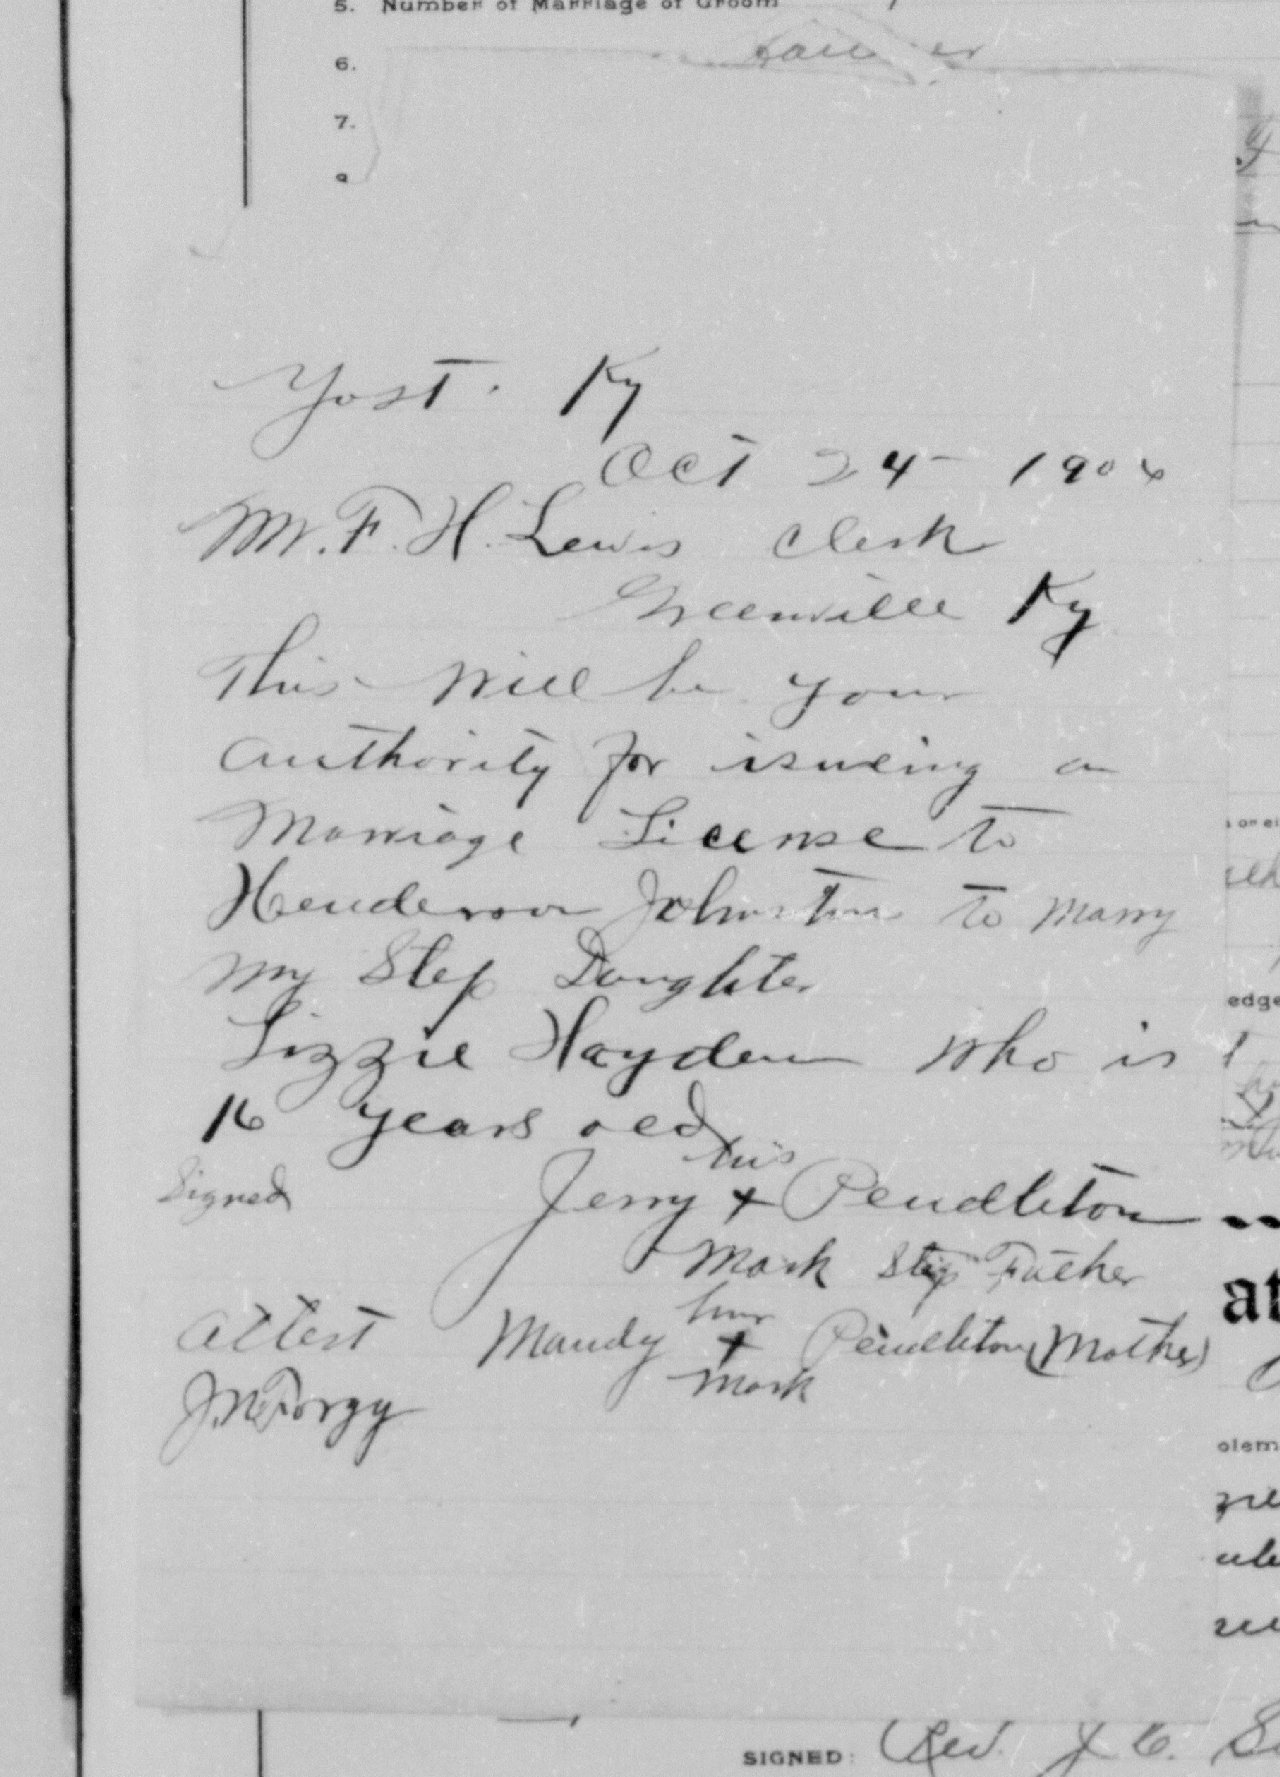 5. Number of Marriage of Groom
6.
7.
Yost. Ky
Oct 24 - 1906
Mr. F. H. Lewis Clerk
Greenville Ky
This will be your
authority for issueing a
Marriage License to
Henderson Johnston to marry
my Step Daughter
Lizzie Hayden who is
16 years old
his
Signed Jerry + Pendleton
Mark Step Father
her
Attest Mandy + Pendleton (Mother)
mark
J. M. Forgy
edge
at
olem
SIGNED: Rev. J. C.